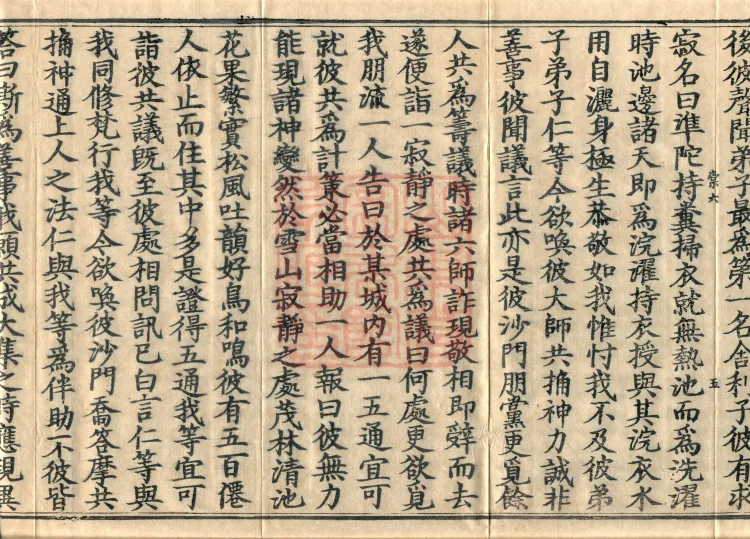 後彼聲聞弟子最為第一名舍利子彼有求
寂名曰準陀持糞掃衣就無熱池而為洗濯
崇六
五
時池邊諸天即為浣濯持衣授與其浣衣水
用自灑身極生恭敬如我惟忖我不及彼弟
子弟子仁等今欲喚彼大師共捔神力誠非
善事彼聞議言此亦是彼沙門朋黨更覓餘
人共為籌議時諸六師詐現敬相即辭而去
遂便詣一寂靜之處共為議曰何處更欲覓
我朋流一人告曰於某城內有一五通宜可
就彼共為計策必當相助一人報曰彼無力
能現諸神變然於雪山寂靜之處茂林清池
花果繁實松風吐韻好鳥和鳴彼有五百僊
人依止而住其中多是證得五通我等宜可
詣彼共議既至彼處相問訊已白言仁等與
我同修梵行我等今欲喚彼沙門喬答摩共
捔神通上人之法仁與我等為伴助不彼皆
答曰斯為善事我願共成大集之時應現異